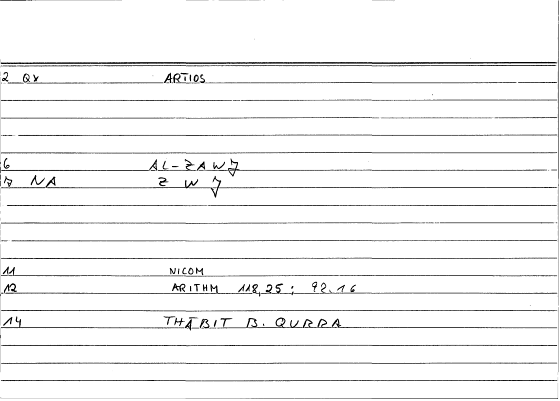 2 QX ARTIOS
6 AL-ZAWJ
7 NA Z W J
11 NICOM
12 ARITHM 118,25; 92.16
14 THĀBIT B. QURRA